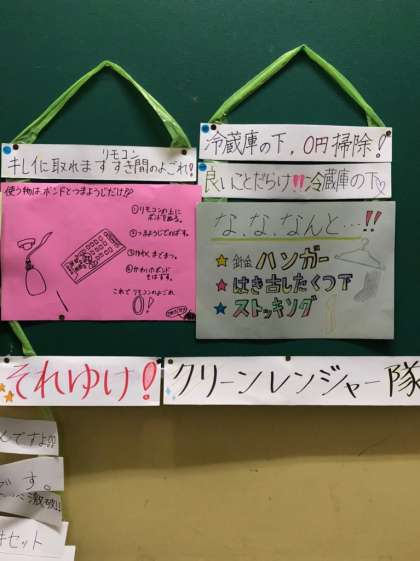 リモコン
キレイに取れますすき間のよごれ!
使う物はボンドとつまようじだけ
①リモコンの上にボンドをぬる。
②つまようじでのばす。
③かわくまで まつ。
④かわいたボンドをはずす。
これでリモコンのよごれ
0!
冷蔵庫の下、0円掃除!
良いことだらけ!!冷蔵庫の下♡
な、な、なんと…!!
★針金ハンガー
★はき古したくつ下
★ストッキング
それゆけ!
クリーンレンジャー隊
ですよ
す。
激破!!
セット